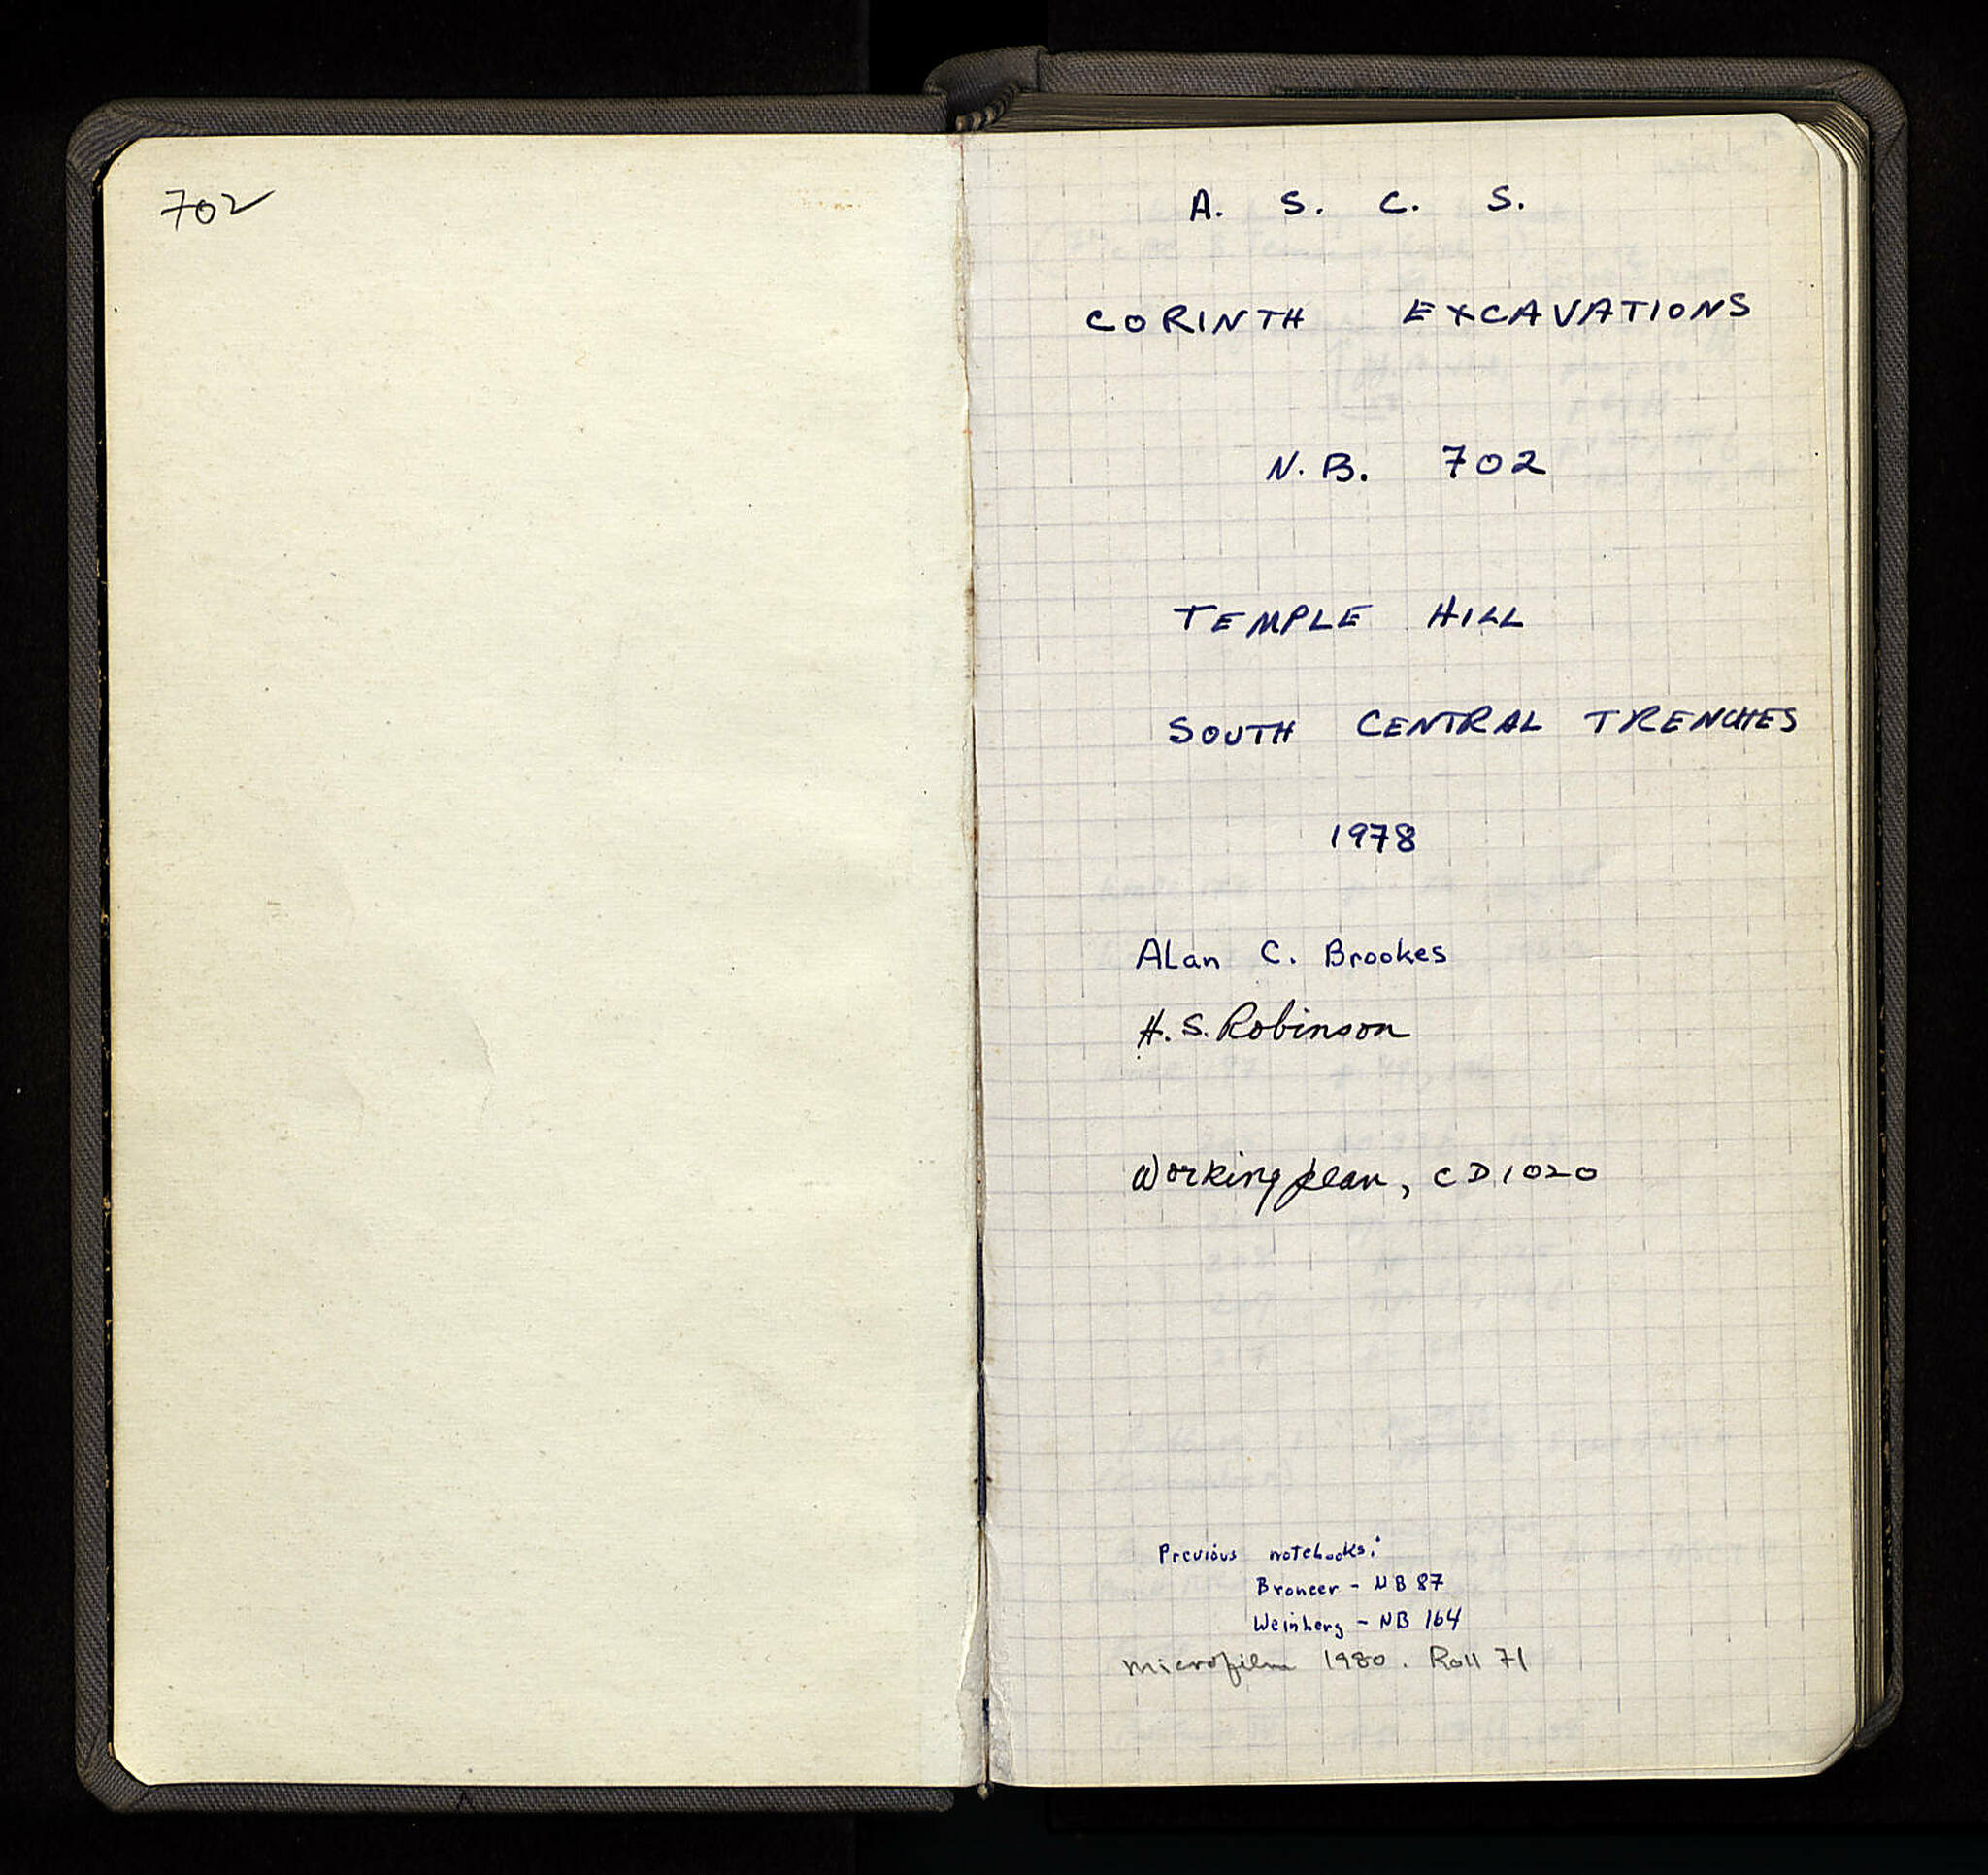 702
A. S. C. S.
CORINTH EXCAVATIONS
N.B. 702
TEMPLE HILL
SOUTH CENTRAL TRENCHES
1978
ALan C. Brookes
H. S. Robinson
Working plan, CD 1020
Previous notebooks:
Broneer - NB 87
Weinberg - NB 164
Microfilm 1980. Roll 71